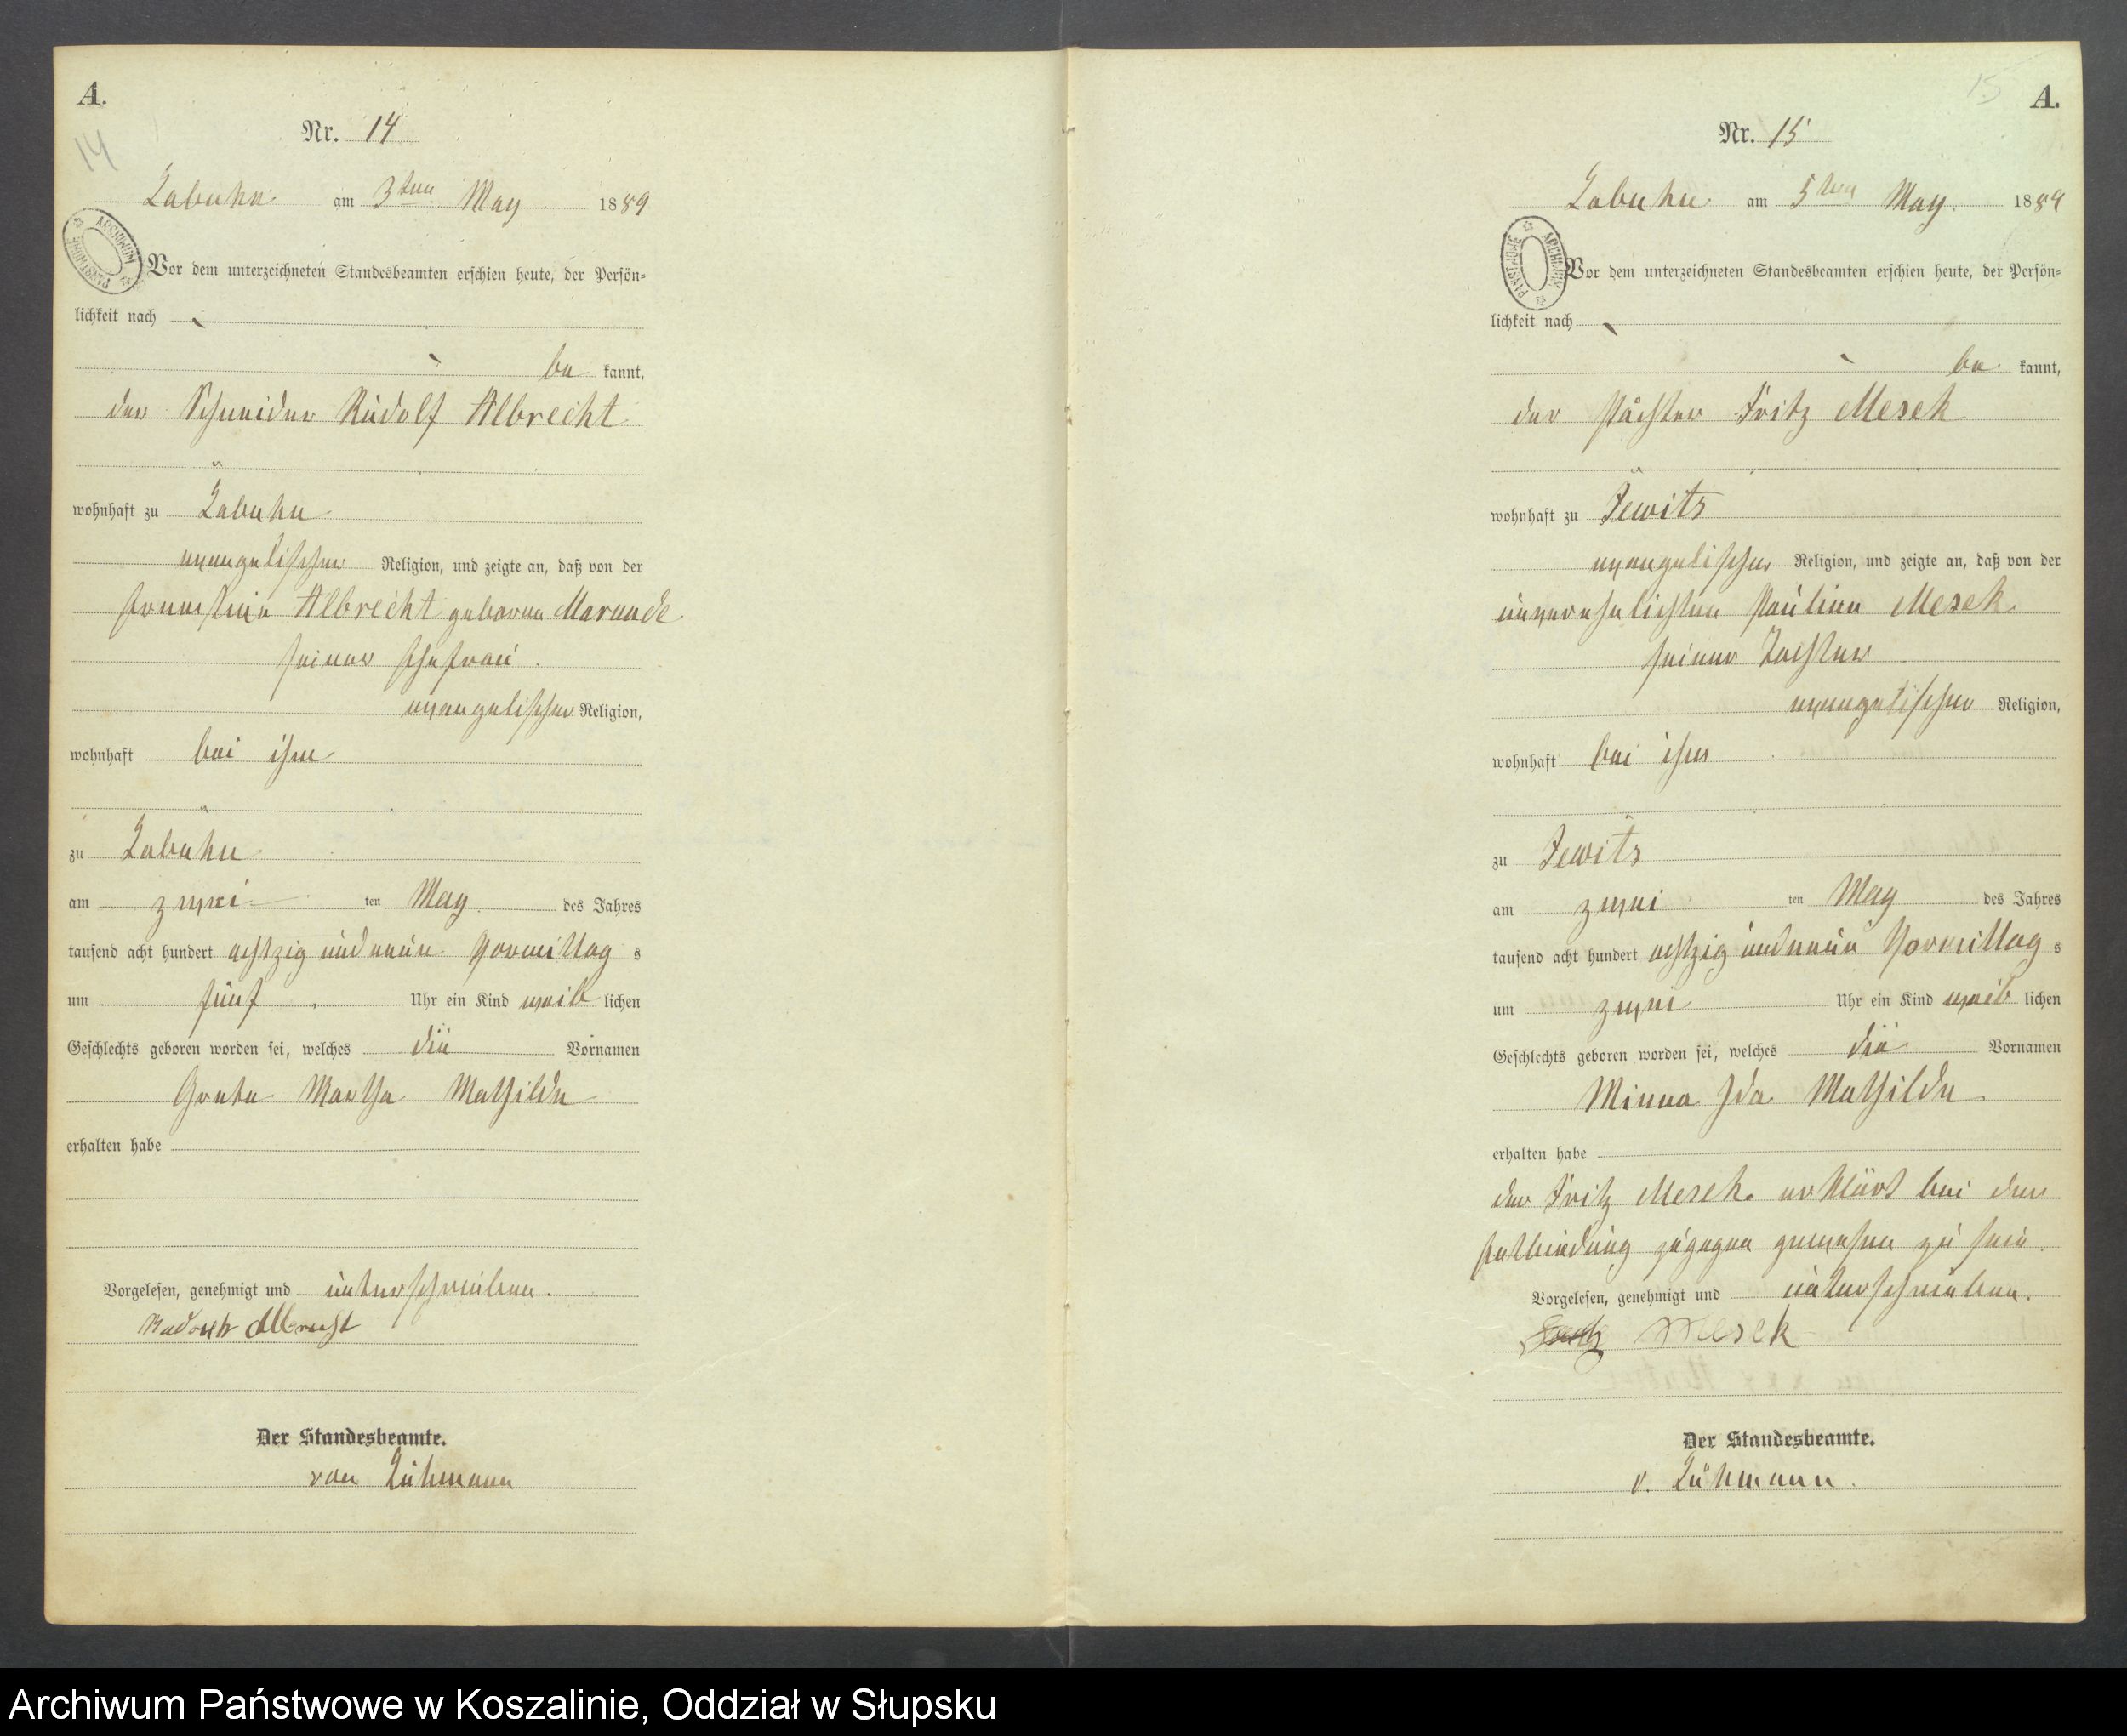 A.
14
Nr. 14
Labuhn am 3ten May 1889
ARCHIWUM PAŃSTWOWE
Vor dem unterzeichneten Standesbeamten erschien heute, der Persön-
lichkeit nach
be kannt,
der Schneider Rudolf Albrecht
wohnhaft zu Labuhn
evangelischer Religion, und zeigte an, daß von der
Ernestine Albrecht geborne Marunde
seiner Ehefrau
evangelischer Religion,
wohnhaft bei ihm
zu Labuhn
am zwei ten May des Jahres
tausend acht hundert achtzig und neun Vormittag s
um fünf Uhr ein Kind weib lichen
Geschlechts geboren worden sei, welches die Vornamen
Grete Martha Mathilde
erhalten habe
Vorgelesen, genehmigt und unterschrieben.
Albrecht
Der Standesbeamte.
von Lühmann
A.
15
Nr. 15
Labuhn am 5ten May 1889
ARCHIWUM PAŃSTWOWE
Vor dem unterzeichneten Standesbeamten erschien heute, der Persön-
lichkeit nach
be kannt,
der Pächter Fritz Mesek
wohnhaft zu Jewitz
evangelischer Religion, und zeigte an, daß von der
unverehelichten Pauline Mesek
seiner Tochter
evangelischer Religion,
wohnhaft bei ihm
zu Jewitz
am zwei ten May des Jahres
tausend acht hundert achtzig und neun Vormittag s
um zwei Uhr ein Kind weib lichen
Geschlechts geboren worden sei, welches die Vornamen
Minna Ida Mathilde
erhalten habe
der Fritz Mesek erklärt bei der
Entbindung zugegen gewesen zu sein
Vorgelesen, genehmigt und unterschrieben.
Mesek
Der Standesbeamte.
v. Lühmann.
Archiwum Państwowe w Koszalinie, Oddział w Słupsku